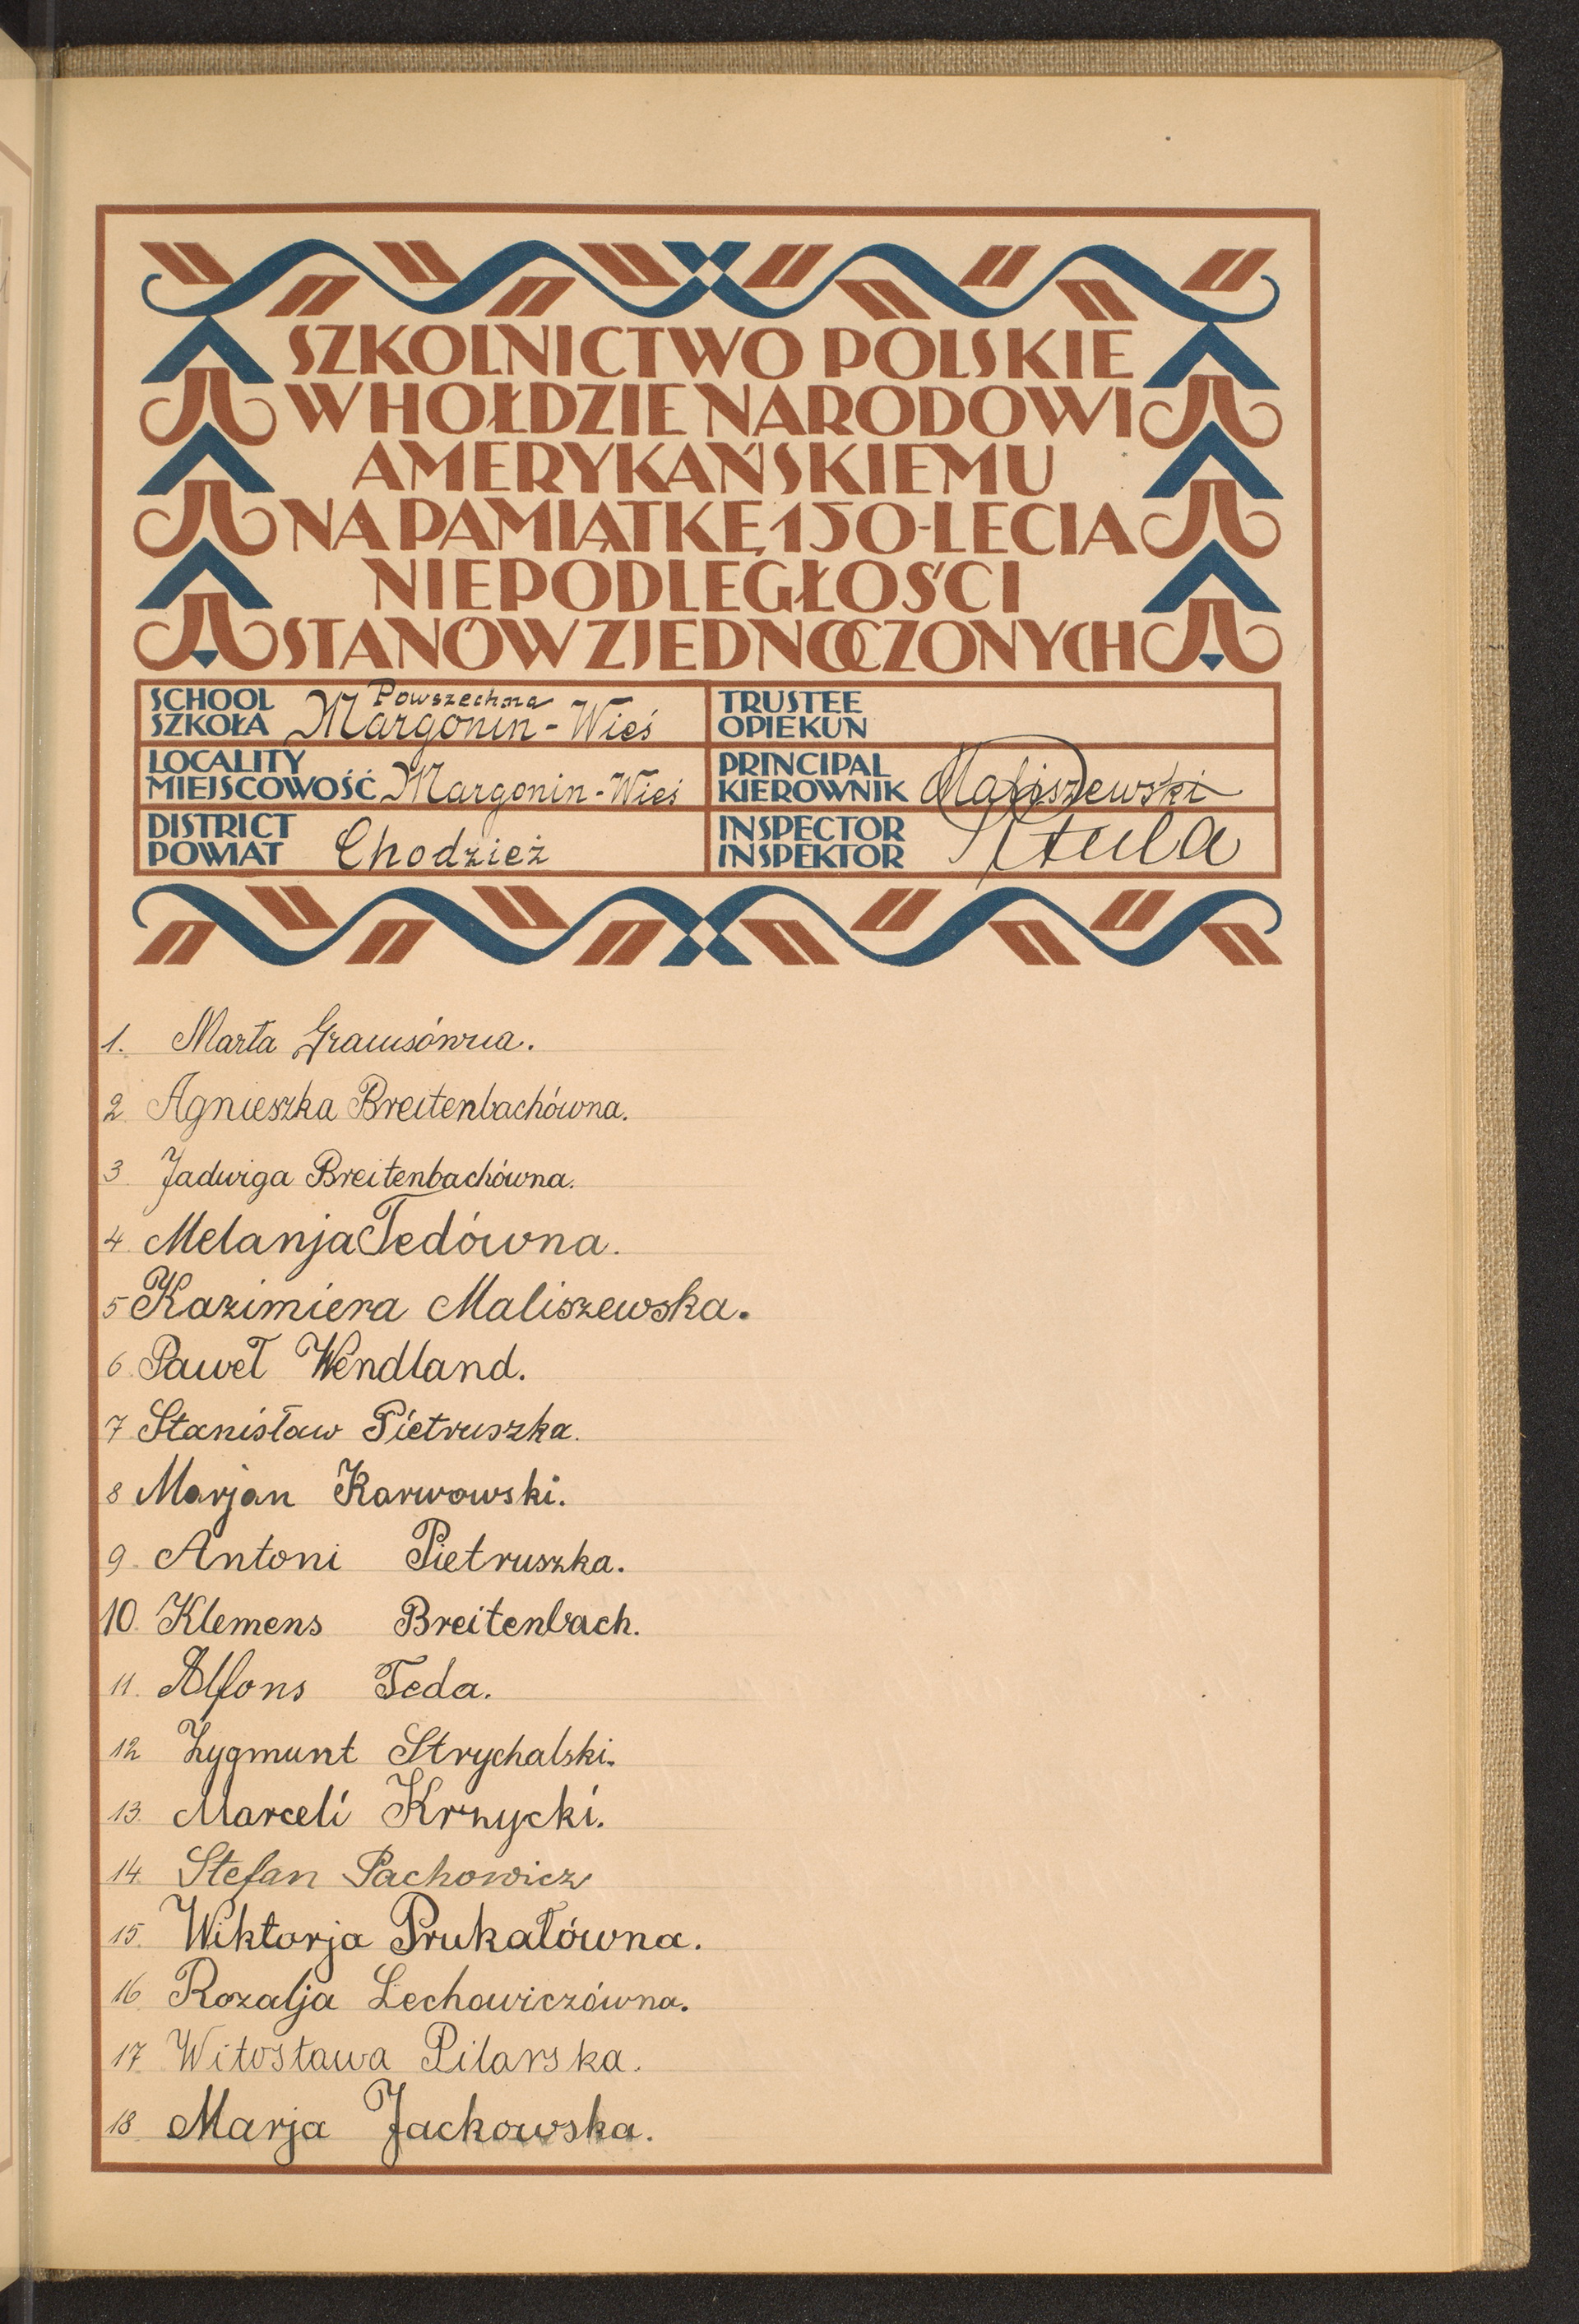 SZKOLNICTWO POLSKIE
W HOŁDZIE NARODOWI
AMERYKAŃSKIEMU
NA PAMIĄTKĘ 150-LECIA
NIEPODLEGŁOŚCI
STANÓW ZJEDNOCZONYCH
SCHOOL
SZKOŁA
Powszechna
Margonin-Wieś
TRUSTEE
OPIEKUN
LOCALITY
MIEJSCOWOŚĆ Margonin-Wieś
PRINCIPAL
KIEROWNIK Maliszewski
DISTRICT
POWIAT Chodzież
INSPECTOR
INSPEKTOR
1. Marta Gramsówna.
2 Agnieszka Breitenbachówna.
3 Jadwiga Breitenbachówna.
4. Melanja Tedówna.
5 Kazimiera Maliszewska.
6. Paweł Wendland.
7 Stanisław Pietruszka.
8 Marjan Karwowski.
9. Antoni Pietruszka.
10. Klemens Breitenbach.
11. Alfons Teda.
12 Zygmunt Strychalski.
13. Marceli Krzycki.
14. Stefan Pachowicz
15. Wiktorja Prukałówna.
16 Rozalja Lechowiczówna.
17. Witosława Pilarska.
18. Marja Jackowska.